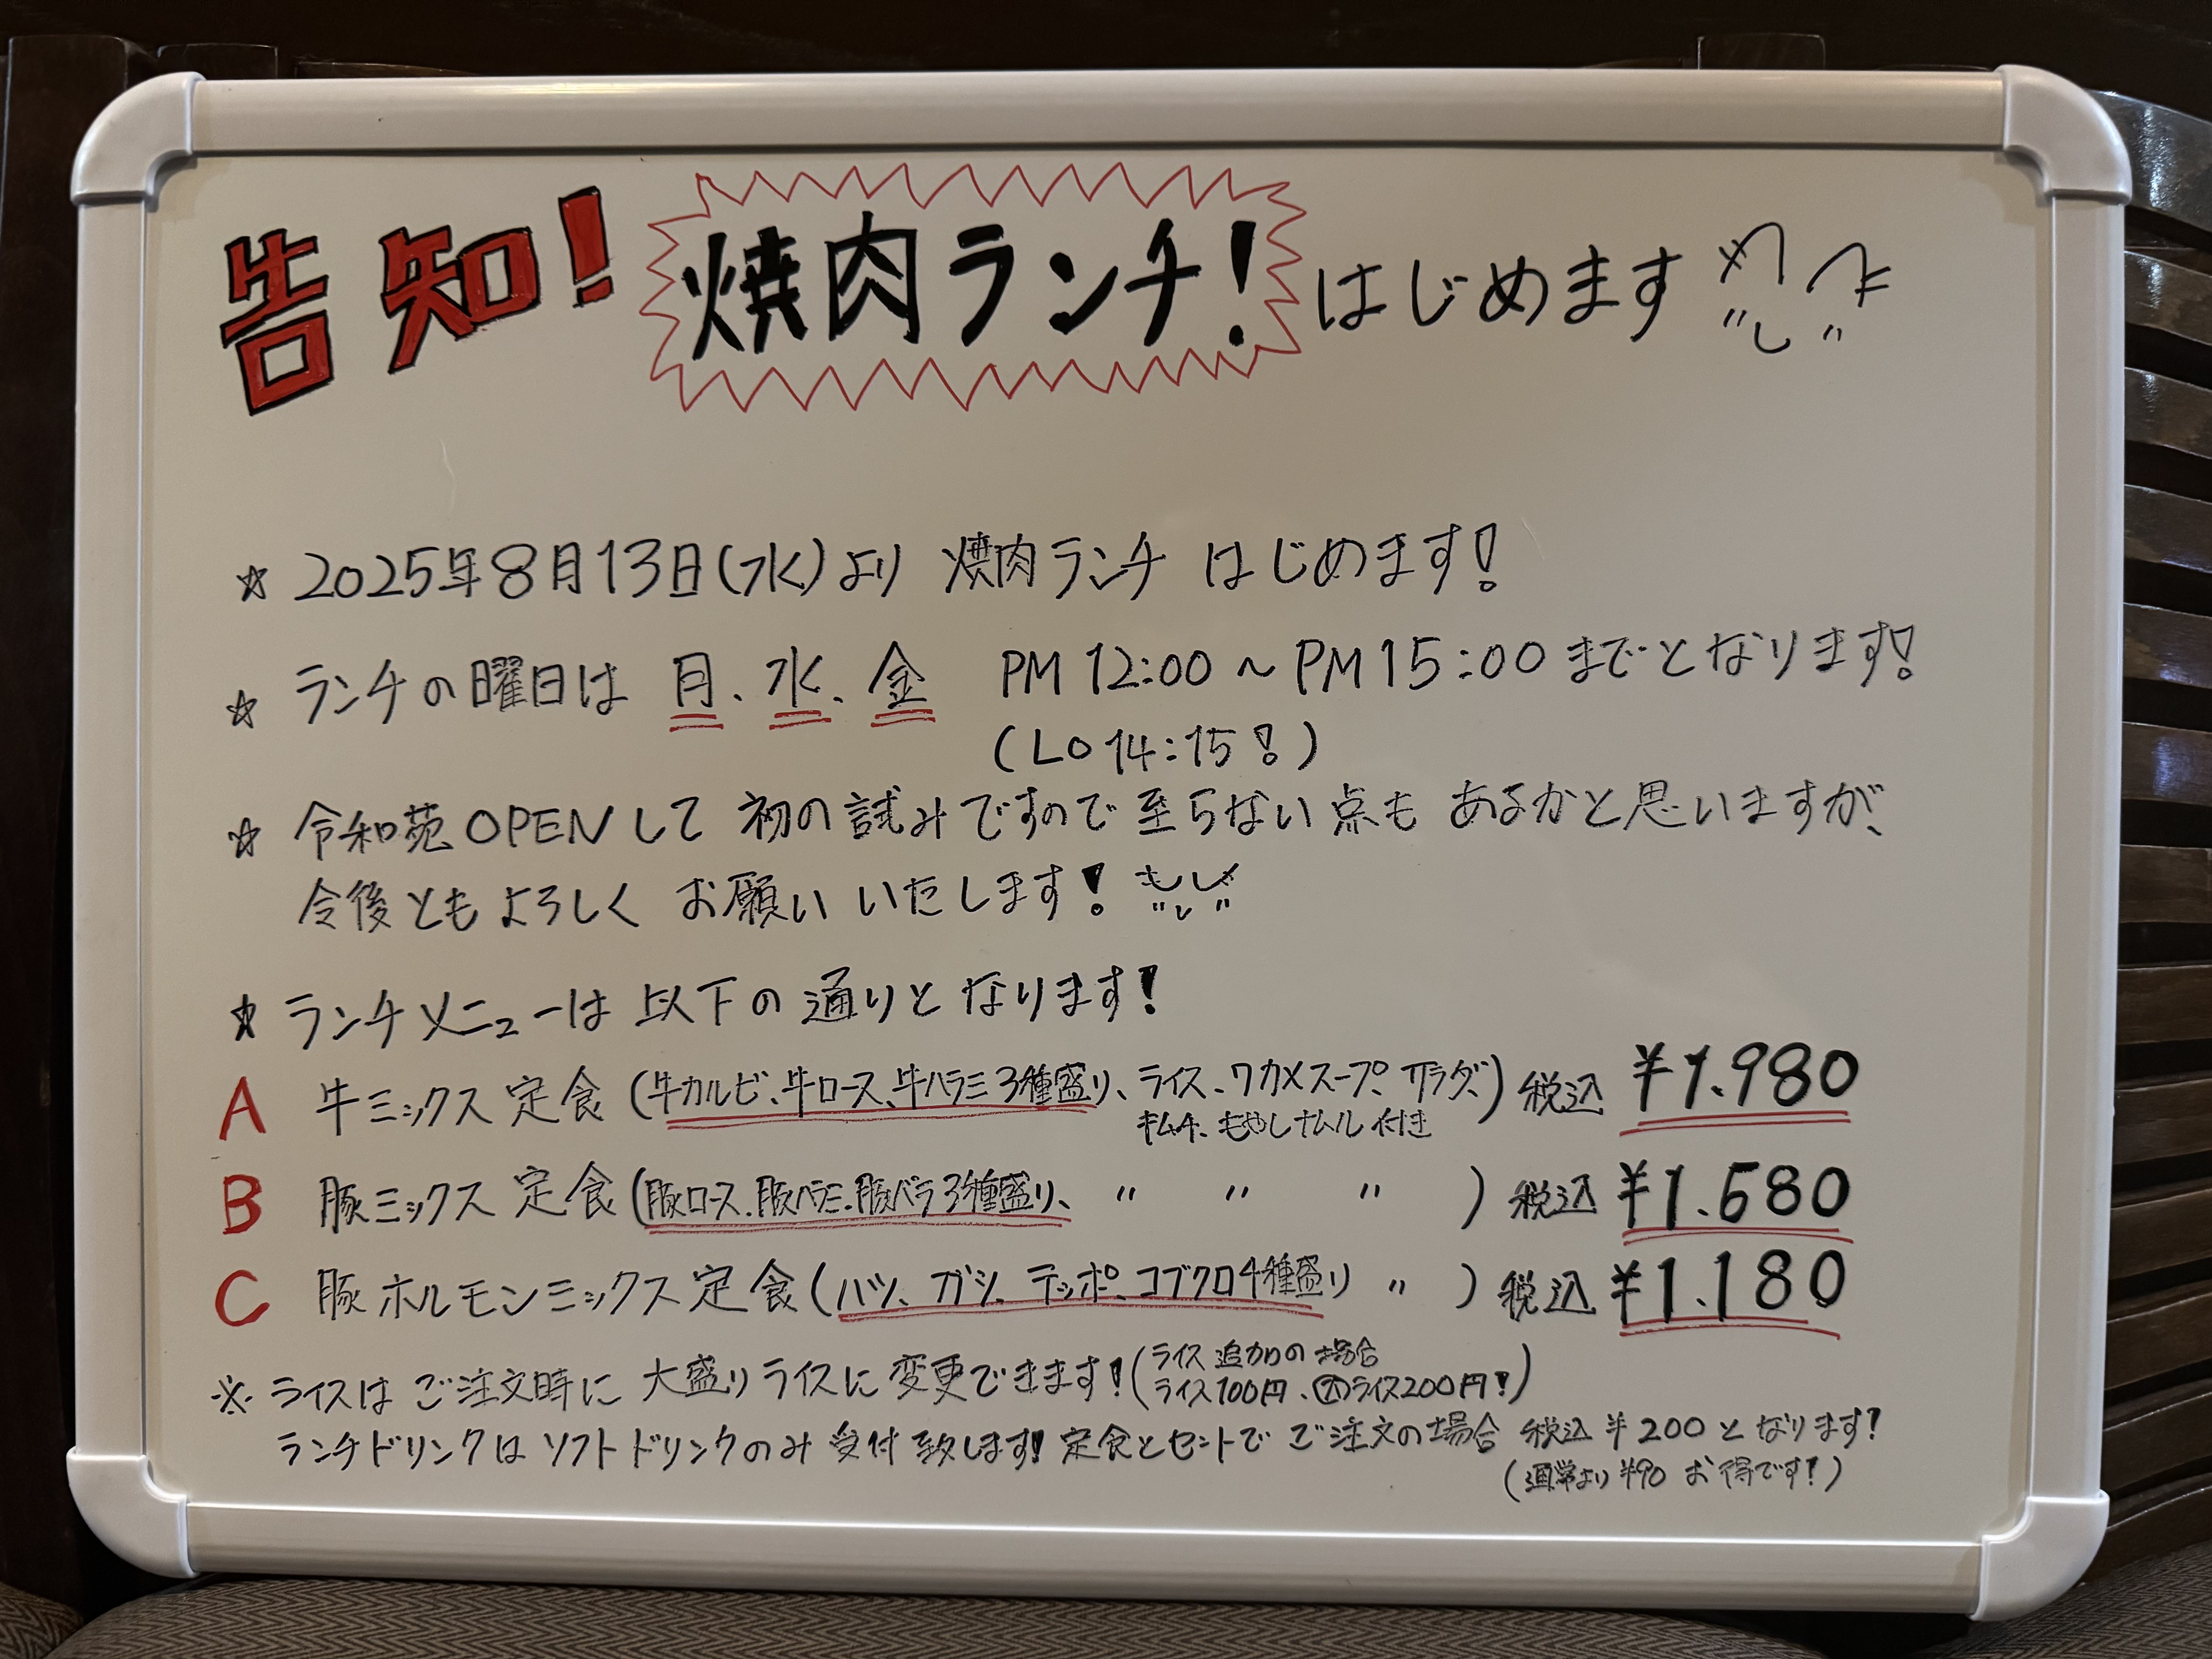 告知! 焼肉ランチ! はじめます
☆ 2025年8月13日(水)より 焼肉ランチ はじめます!
☆ ランチの曜日は 月、水、金 PM 12:00 ~ PM 15:00 までとなります!
(LO 14:15!)
☆ 令和苑OPENして 初の試みですので 至らない点も あるかと思いますが、
今後ともよろしく お願い いたします!
☆ ランチメニューは 以下の通りと なります!
A 牛ミックス 定食 (牛カルビ、牛ロース、牛ハラミ 3種盛り、ライス、ワカメスープ、サラダ、) 税込 ¥1.980
キムチ、もやしナムル 付き
B 豚ミックス 定食 (豚ロース、豚ハラミ、豚バラ 3種盛り、 〃 〃 〃 ) 税込 ¥1.580
C 豚ホルモンミックス定食 (ハツ、ガシ、テッポ、コブクロ4種盛り 〃 ) 税込 ¥1.180
※ ライスは ご注文時に 大盛りライスに 変更できます! (ライス 追加の 場合
ライス100円、大ライス200円!)
ランチドリンクは ソフトドリンクのみ 受付 致します! 定食とセットで ご注文の場合 税込 ¥200 となります!
(通常より ¥90 お得です!)